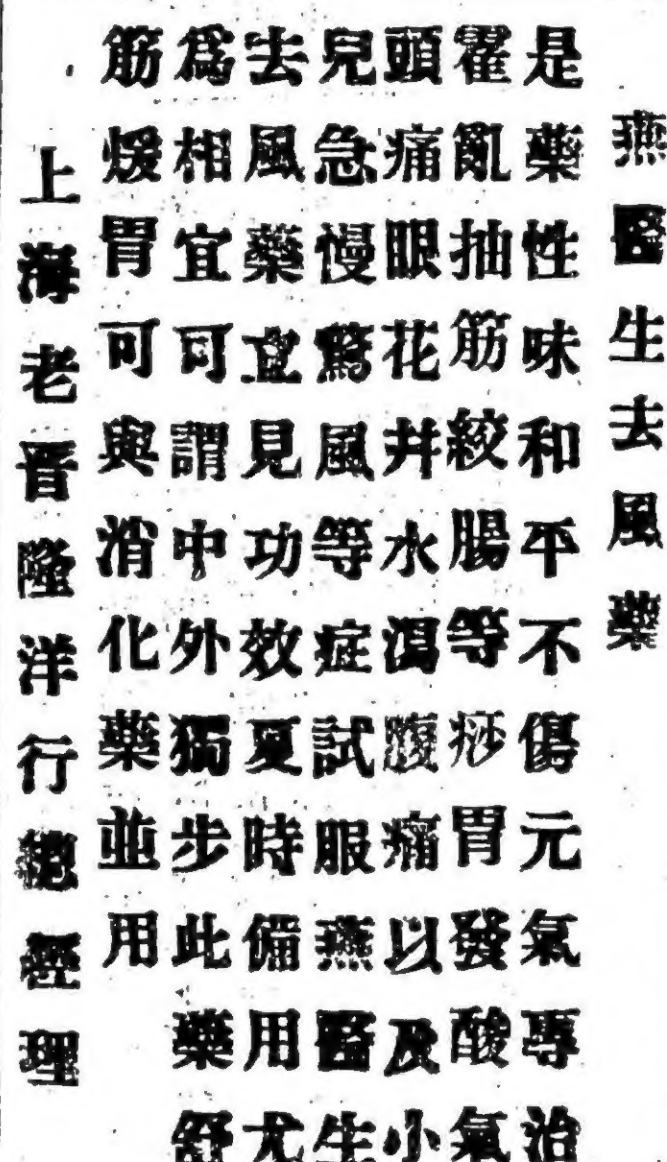 燕醫生去風藥
是藥性味和平不傷元氣專治
霍亂抽筋絞腸等痧胃發酸氣
頭痛眼花并水瀉腹痛以及小
兒急慢驚風等症試服燕醫生
去風藥立見功效夏時備用尤
爲相宜可謂中外獨步此藥舒
筋煖胃可與消化藥並用
上海老晋隆洋行總經理